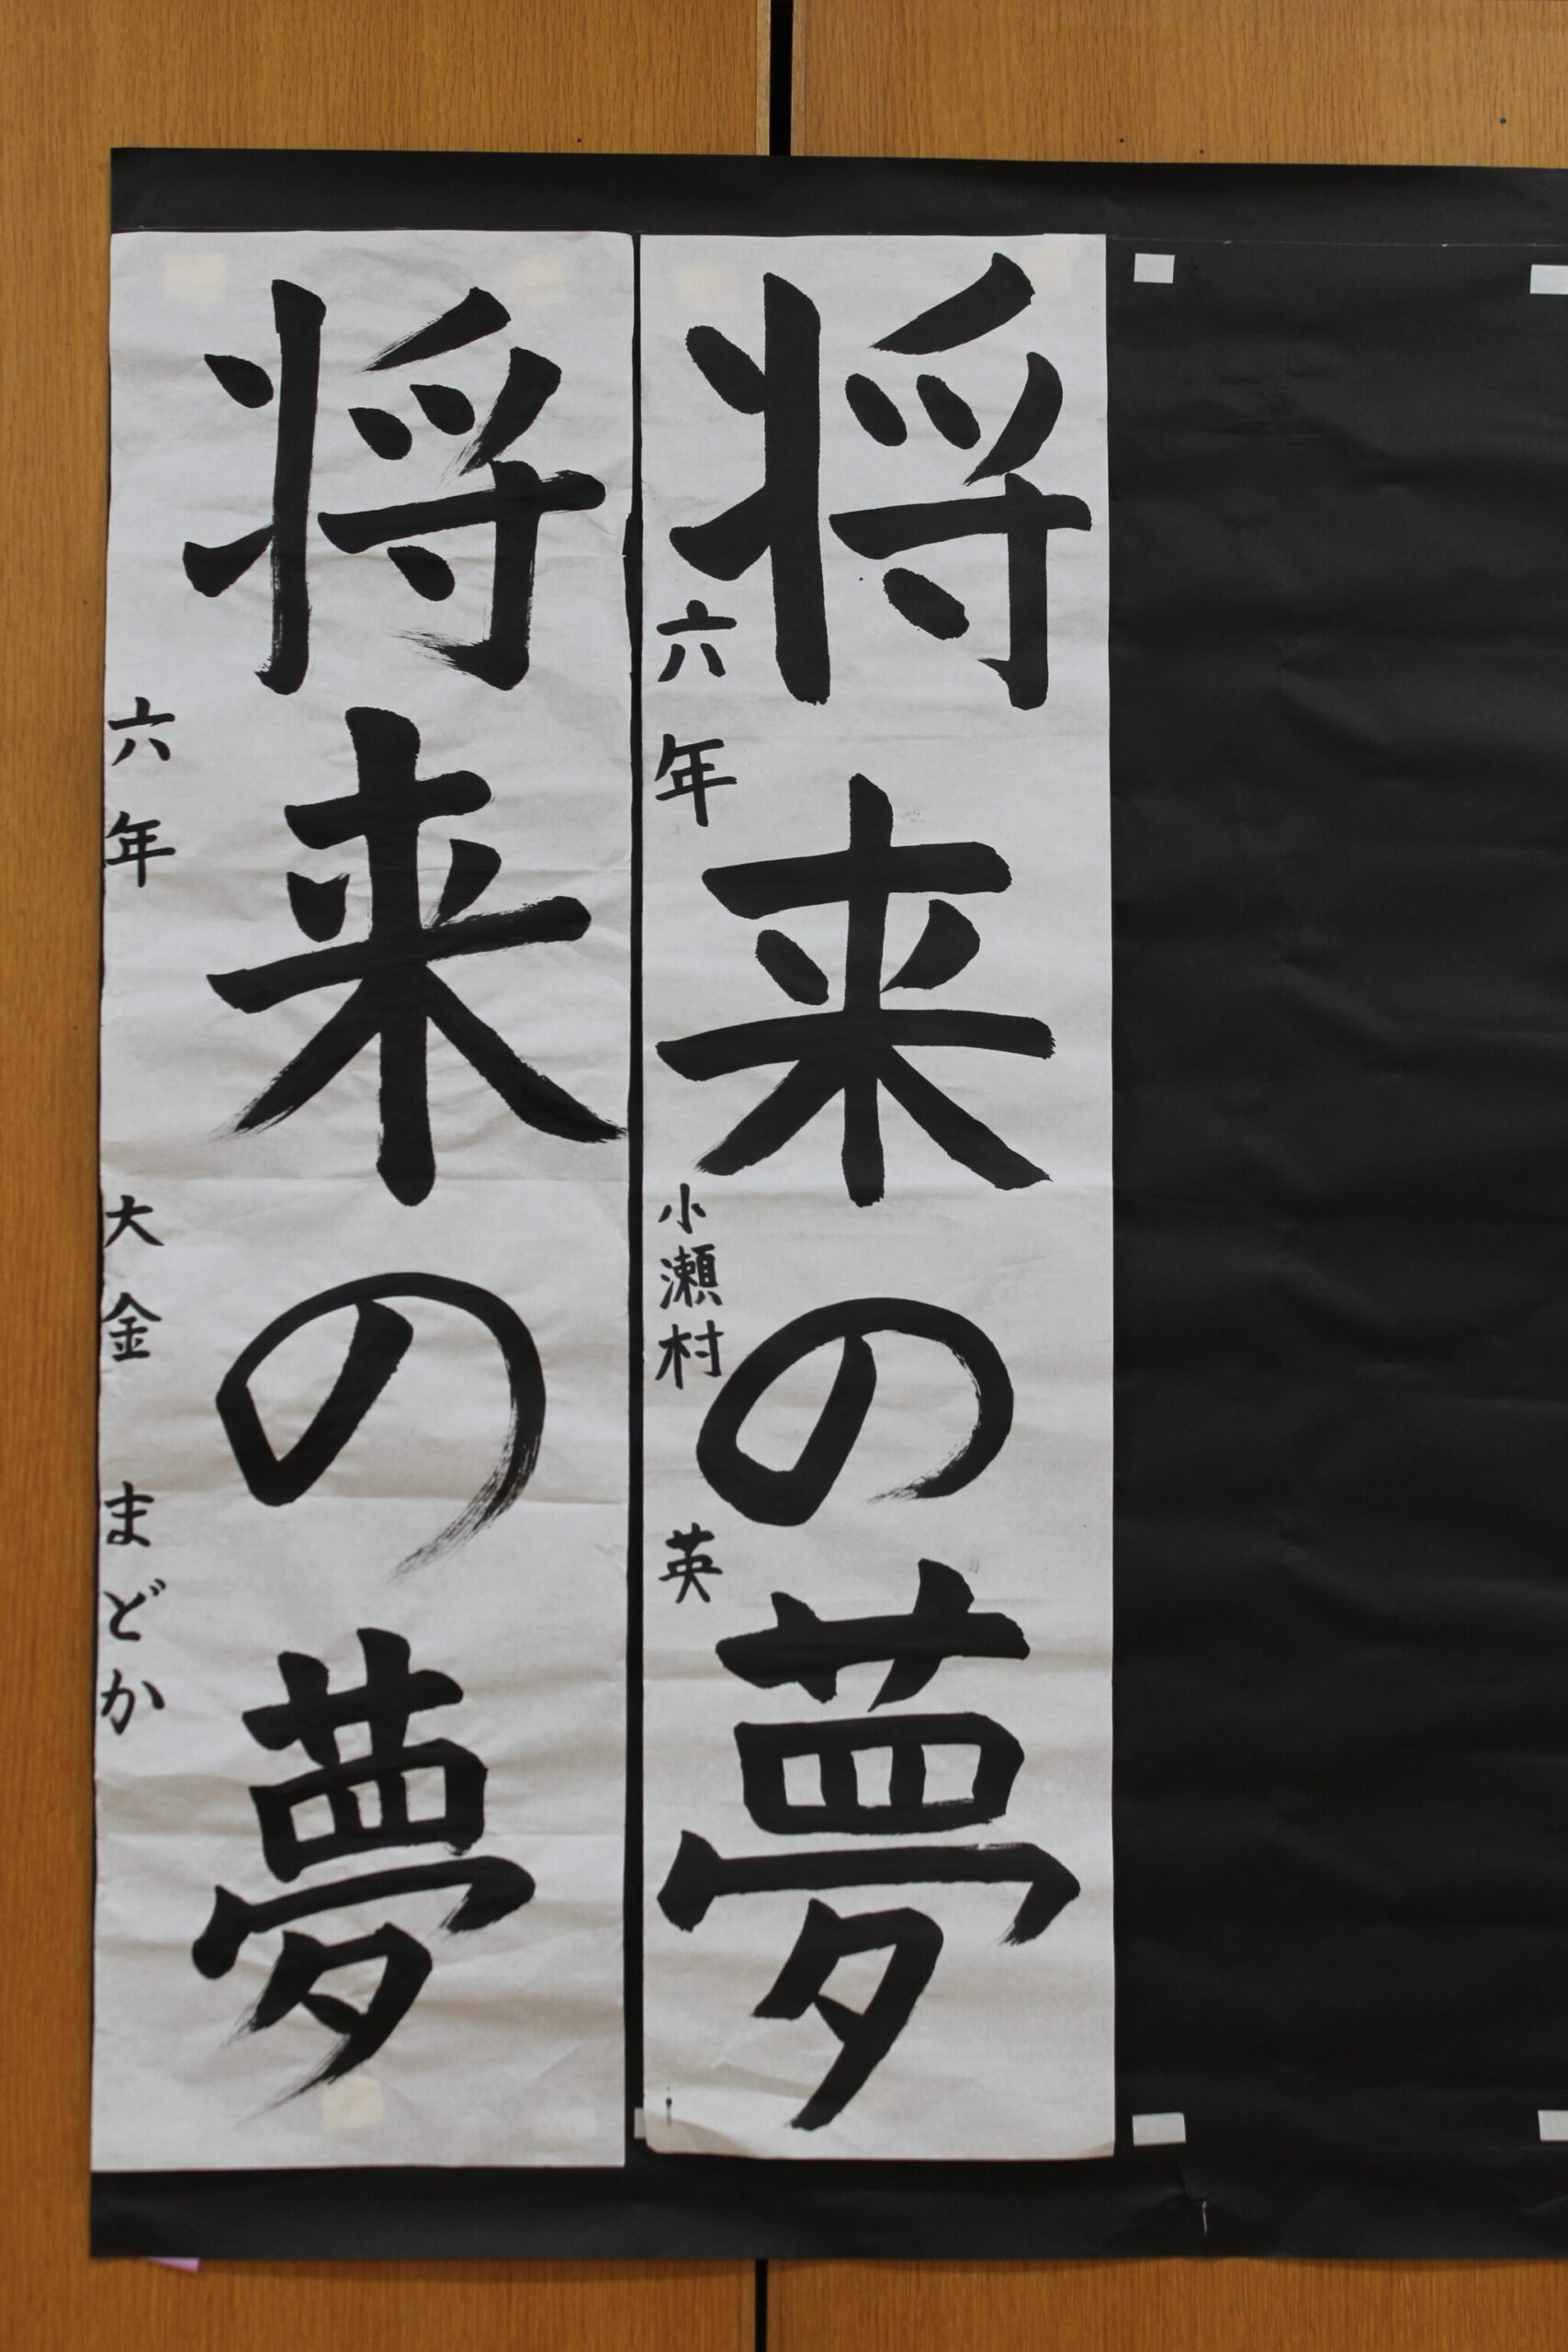 将来の夢
六年 小瀬村 英
将来の夢
六年 大金 まどか